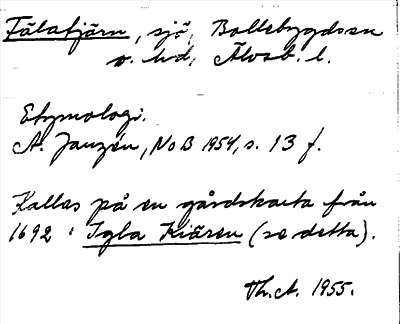 Fälatjärn, sjö, Bollebygds sn
o. hd, Älvsb. l.
Etymologi.
A. Janzén, NoB 1954, s. 13 f.
Kallas på en gårdskarta från
1692: Igla Kiären (se detta).
Th.A. 1955.